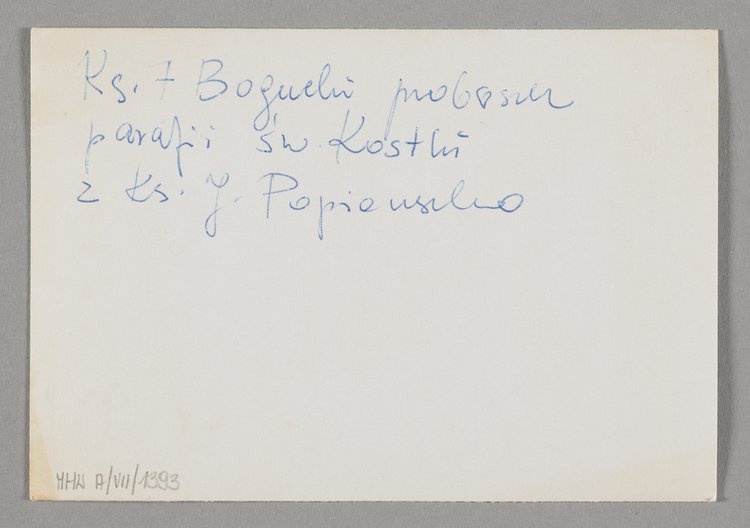 Ks. T Bogucki proboszcz
parafii św. Kostki
z Ks. J. Popiełuszko
MHW A/VII/1393